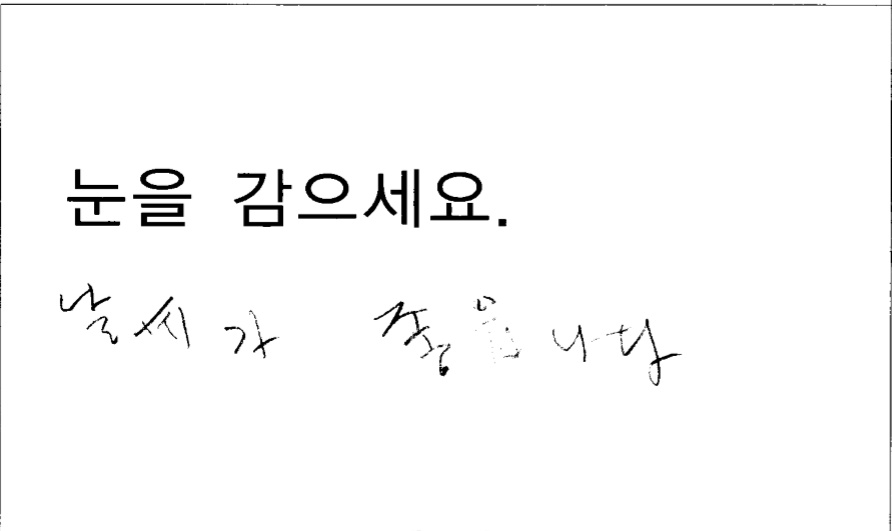 눈을 감으세요.
날씨가 좋읍니다